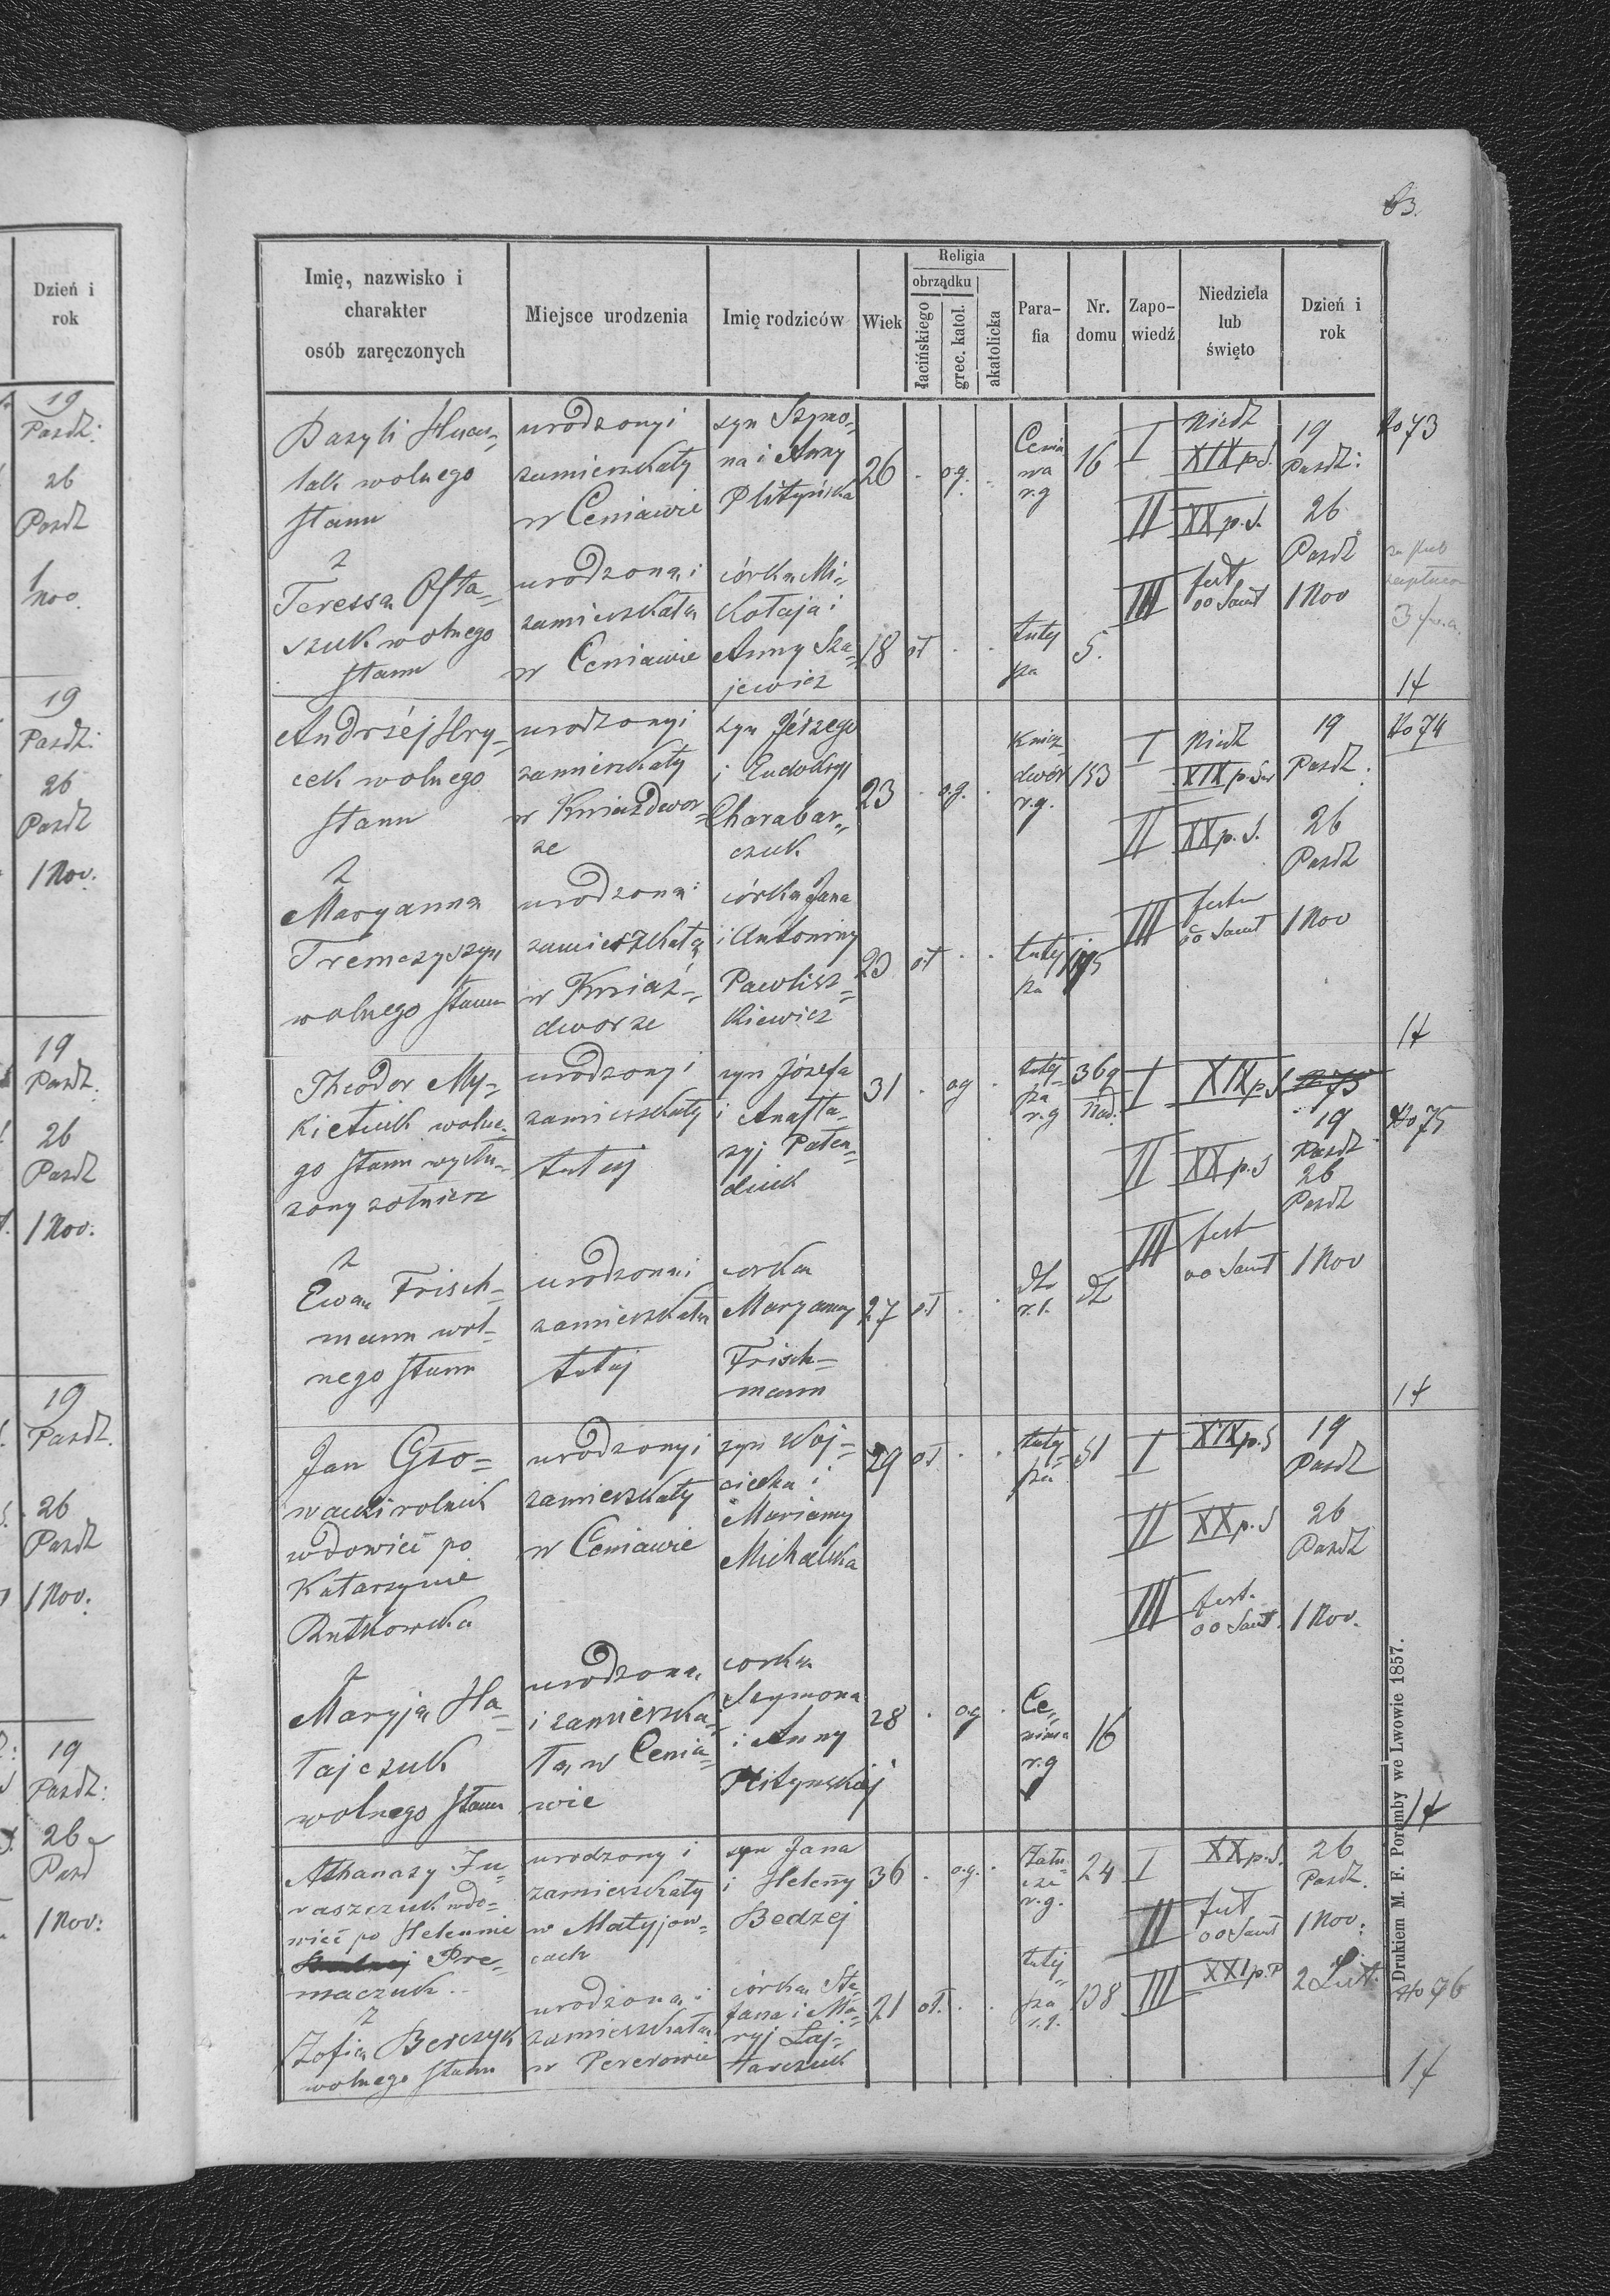 Dzień i
rok
19
Pazdz:
26
Pazdz
1
Nov.
19
Pazdz:
26
Pazdz
1 Nov.
19
Pazdz.
26
Pazdz
1 Nov:
19
Pazdz.
26
Pazdz
1 Nov.
19
Pazdz:
26
Pazd
1 Nov:
63.
Imię, nazwisko i
charakter
osób zaręczonych
Miejsce urodzenia
Imię rodziców
Wiek
Religia
obrządku
łacińskiego
grec. katol.
akatolicka
Para-
fia
Nr.
domu
Zapo-
wiedź
Niedziela
lub
święto
Dzień i
rok
Bazyli
wolnego
stanu
urodzony i
zamieszkały
w Ceniawie
syn Szymo=
na i Anny
26 . o.g. .
Cenia
wa
r.g
16
I
Niedz
XIX p.S.
19
Pazdz:
No 73
II
XX p.S.
26
Pazdz
III
fest
oo Sanct
1 Nov
z
Teressa Osta=
szuk wolnego
stanu
urodzona i
zamieszkała
w Ceniawie
córka Mi=
kołaja i
Anny Sza=
jewicz
18 oł . .
tutej
sza
5.
1 f
Andrzéj Hry=
cek wolnego
stanu
urodzony i
zamieszkały
w Kniazdwor=
ze
syn Jérzego
i Eudokyi
Charabar=
czuk
23 . o.g. .
Kniaz
dwór
r.g.
153
I
Niedz
XIX p. Sw
19
Pazdz.
No 74
II
XX p.S.
26
Pazdz
III
oo Sanct
1 Nov
z
Maryanna
Tremczyszyn
wolnego stanu
urodzona i
zamieszkała
w Kniaź=
dworze
córka Jana
i Antoniny
Pawlisz=
kiewicz
23 oł . .
tutej
sza
1 f
Theodor My=
kietiuk wolne=
go stanu wysłu=
zony zołnierz
urodzony i
zamieszkały
tutaj
syn Józefa
i Anasta=
zyj Paten=
diuk
31 . og .
tutej=
sza
r.g
369
Nad.
I
XIX p.S
19
Pazdz
No 75
II
XX p.S
26
Pazdz
III
oo Sanct
1 Nov
z
Ewa Frisch=
mann wol=
nego stanu
urodzona i
zamieszkała
tutaj
corka
Maryanny
Frisch=
mann
27 oł . .
dto
r.ł.
dto
1 f
Jan
wdowiec po
Katarzynie
Rutkowska
urodzony i
zamieszkały
w Ceniawie
syn Woj=
ciecha i
Marianny
Michalska
29 oł . .
tutej
sza
51
I
XIX p.S
19
Pazdz
II
XX p.S
26
Pazdz
III
fest.
oo Sanct.
1 Nov.
z
Maryja Ha=
łajczuk
wolnego stanu
urodzona
i zamieszka=
ła w Cenia=
wie
corka
Szymona
i Anny
28 . og .
Ce=
niawa
r.g
16
1 f
Athanazy Ju=
raszczuk wdo=
wiec po Helennie
Pre=
maczuk
urodzony i
zamieszkały
w Matyjow=
cach
syn Jana
i Heleny
Bedzej
36 . o.g. .
Zału=
cze
r.g.
24
I
XX p.S.
26
Pazdz.
II
fest
oo Sanct
1 Nov:
III
XXI p.P
2 List.
No 76
z
Zofia Berczyk
wolnego stanu
urodzona i
zamieszkała
w Pererowie
córka Ste=
fana i Ma=
ryj Laj=
tarczuk
21 oł. . .
tutej=
sza
138
1 f
Drukiem M. F. Poremby we Lwowie 1857.